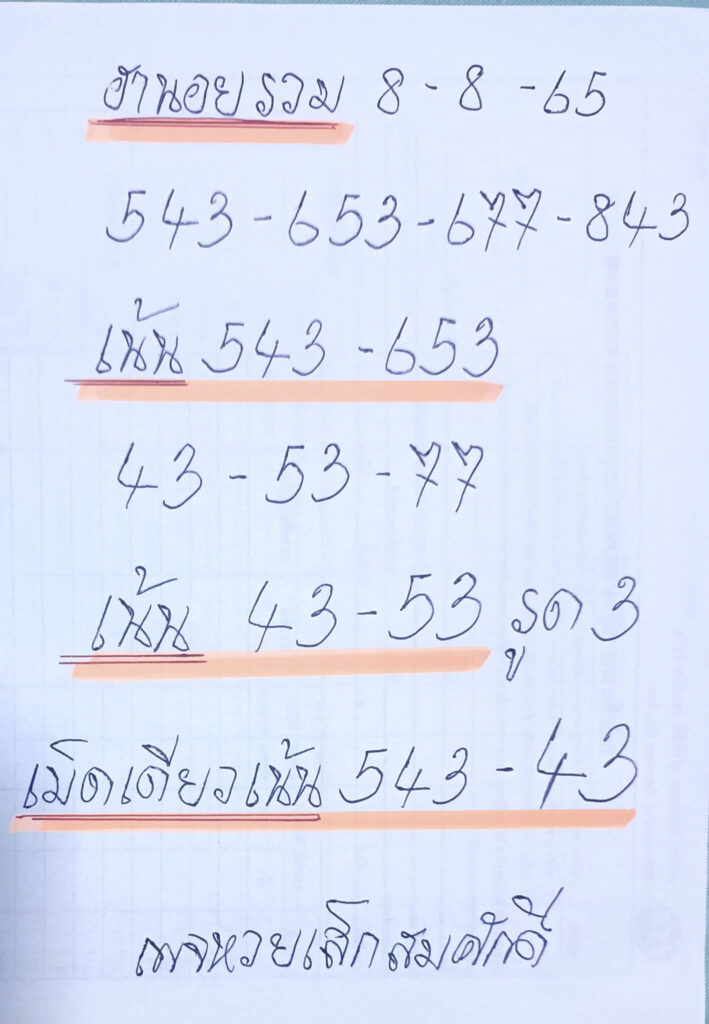 ฮานอยรวม 8 - 8 - 65
543 - 653 - 677 - 843
เน้น 543 - 653
43 - 53 - 77
เน้น 43 - 53 รูด 3
เม็ดเดียวเน้น 543 - 43
เพจหวยเสกสมศักดิ์